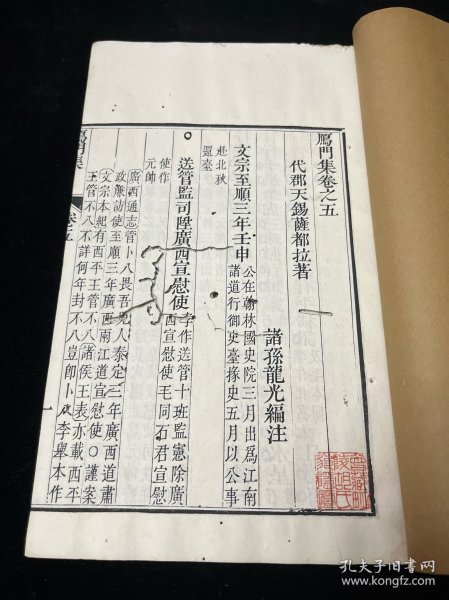 鴈門集卷之五
代郡天錫薩都拉著
諸孫龍光編注
文宗至順三年壬申
公在翰林國史院三月出爲江南
諸道行御史臺掾史五月以公事
赴北狄
還臺
送管監司陞廣西宣慰使
李作送管十班監憲除廣
西宣慰使毛同石君宣慰
使作
元帥
廣西通志管卜八畏吾兒人泰定三年廣西道肅
政廉訪使至順三年廣西兩江道宣慰使○謹案
文宗本紀有西平王管不八諸侯王表亦載西平
王管不八不詳何年封不八豈卽卜八李舉本作
鴈門集
卷五
孔夫子旧书网
book.kongfz.com